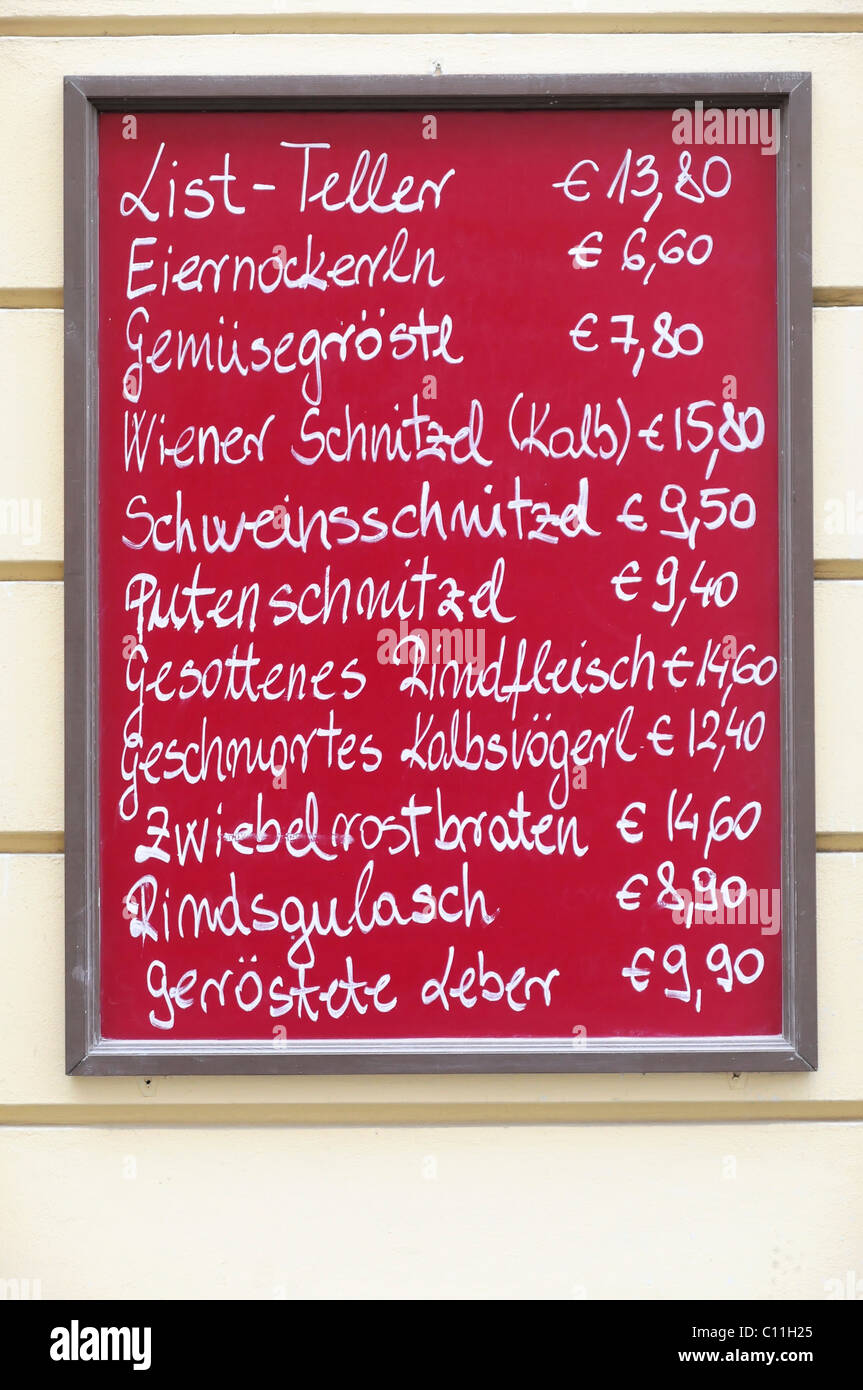 List-Teller € 13,80
Eiernockerln € 6,60
Gemüsegröstl € 7,80
Wiener Schnitzel (Kalb) € 15,80
Schweinsschnitzel € 9,50
Putenschnitzel € 9,40
Gesottenes Rindfleisch € 14,60
Geschmortes Kalbsvögerl € 12,40
Zwiebelrostbraten € 14,60
Rindsgulasch € 8,90
geröstete Leber € 9,90
alamy
Image ID: C11H25
www.alamy.com